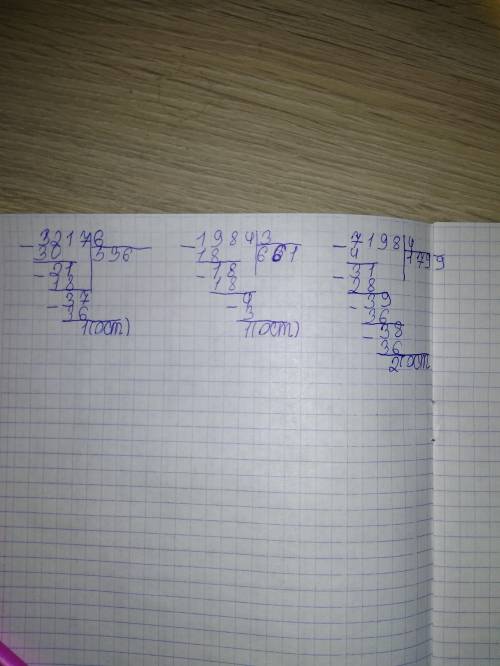 - 3217 6
30 536
- 21
18
- 37
36
1(ост)
- 1984 3
18 661
- 18
18
- 4
3
1(ост)
- 7198 4
4 1799
- 31
28
- 39
36
- 38
36
2(ост